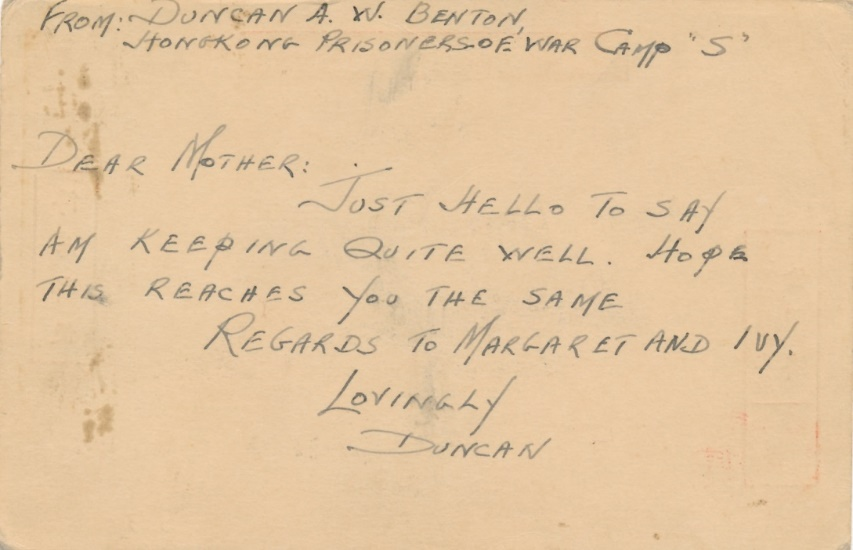 FROM: DUNCAN A. W. BENTON,
HONGKONG PRISONERS OF WAR CAMP "S"
DEAR MOTHER:
JUST HELLO TO SAY
AM KEEPING QUITE WELL. HOPE
THIS REACHES YOU THE SAME
REGARDS TO MARGARET AND IVY.
LOVINGLY
DUNCAN